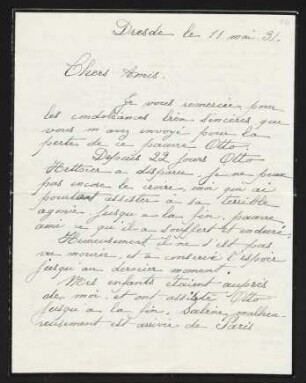 Dresde le 11 mai 31.
Chers Amis.
Je vous remercie pour
les condoléances bien sincères que
vous m'avez envoyé pour la
perte de ce pauvre Otto.
Depuis 22 jours Otto
Hettner a disparu, je ne peux
pas encore le croire, moi qui ai
pourtant assister a sa terrible
agonie jusqu'a la fin, pauvre
ami ce qu'il a souffert et enduré.
Heureusement il ne s'est pas
vu mourir, et a conservé l'espoir
jusqu'au dernier moment.
Mes enfants étaient auprès
de moi, et ont assisté Otto
jusqu'a la fin. Sabine malheu-
reusement est arrivée de Paris